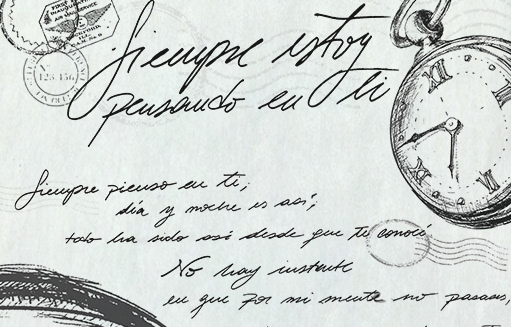 Siempre estoy
pensando en ti
Siempre pienso en ti;
día y noche es así;
todo ha sido así desde que te conocí
No hay instante
en que por mi mente no pasases,